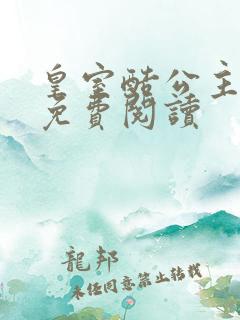 皇室酷公主
免費閱讀
龍邦
未经同意禁止转载